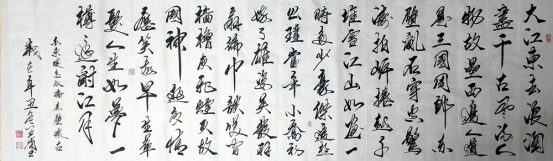 大江東去浪淘
盡千古風流人
物故壘西邊人道
是三國周郎赤
壁亂石穿空驚
濤拍岸捲起千
堆雪江山如畫一
時多少豪傑遙想
公瑾當年小喬初
嫁了雄姿英發羽
扇綸巾談笑間
檣櫓灰飛煙滅故
國神遊多情
應笑我早生華
髮人生如夢一
樽還酹江月
念奴嬌赤壁懷古
辛丑